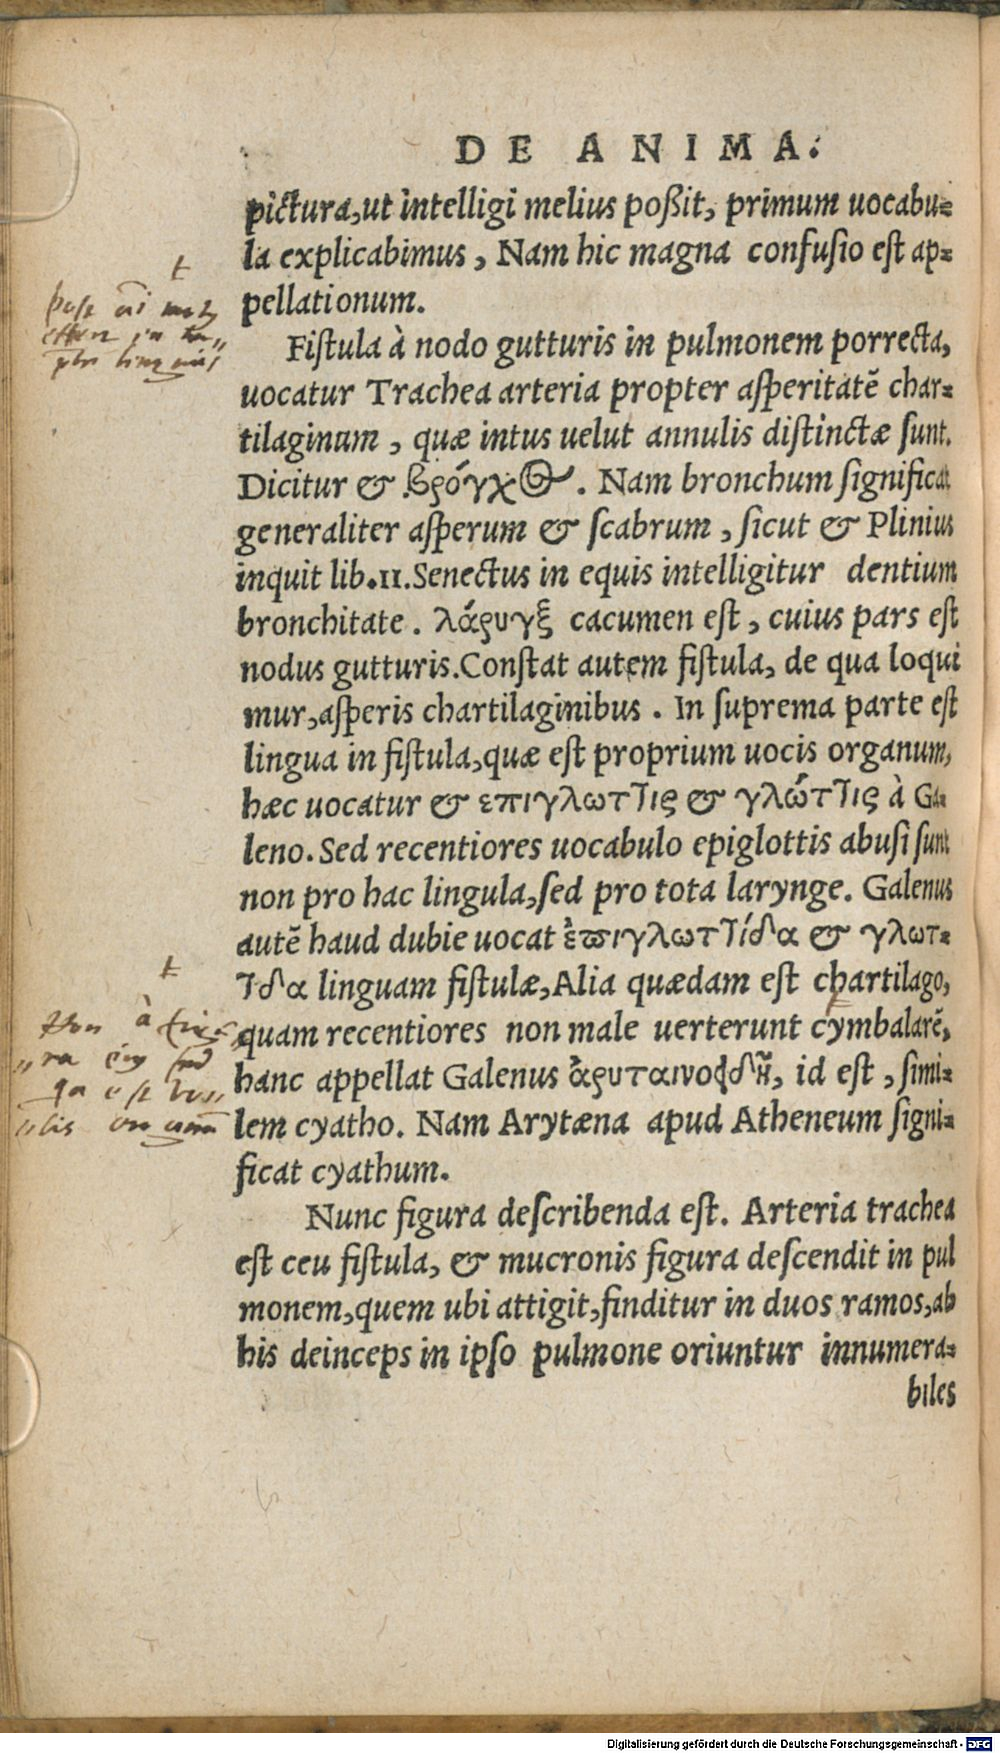 DE ANIMA.
pictura,ut intelligi melius poßit, primum uocabu=
la explicabimus, Nam hic magna confusio est ap=
pellationum.
Fistula à nodo gutturis in pulmonem porrecta,
uocatur Trachea arteria propter asperitatē char=
tilaginum, quæ intus uelut annulis distinctæ sunt.
Dicitur & βρόγχος. Nam bronchum significat
generaliter asperum & scabrum, sicut & Plinius
inquit lib.11.Senectus in equis intelligitur dentium
bronchitate. λάρυγξ cacumen est, cuius pars est
nodus gutturis.Constat autem fistula, de qua loqui
mur,asperis chartilaginibus. In suprema parte est
lingua in fistula,quæ est proprium uocis organum,
hæc uocatur & επιγλωττὶς & γλώττὶς à Ga=
leno. Sed recentiores uocabulo epiglottis abusi sunt
non pro hac lingula,sed pro tota larynge. Galenus
autē haud dubie uocat ἐπιγλωττίδα & γλωτ=
τδα linguam fistulæ,Alia quædam est chartilago,
quam recentiores non male uerterunt cymbalarē,
hanc appellat Galenus ἀρυταινοφδῆ, id est, simi=
lem cyatho. Nam Arytæna apud Atheneum signi=
ficat cyathum.
Nunc figura describenda est. Arteria trachea
est ceu fistula, & mucronis figura descendit in pul
monem,quem ubi attigit,finditur in duos ramos,ab
his deinceps in ipso pulmone oriuntur innumera=
biles
Digitalisierung gefördert durch die Deutsche Forschungsgemeinschaft - DFG